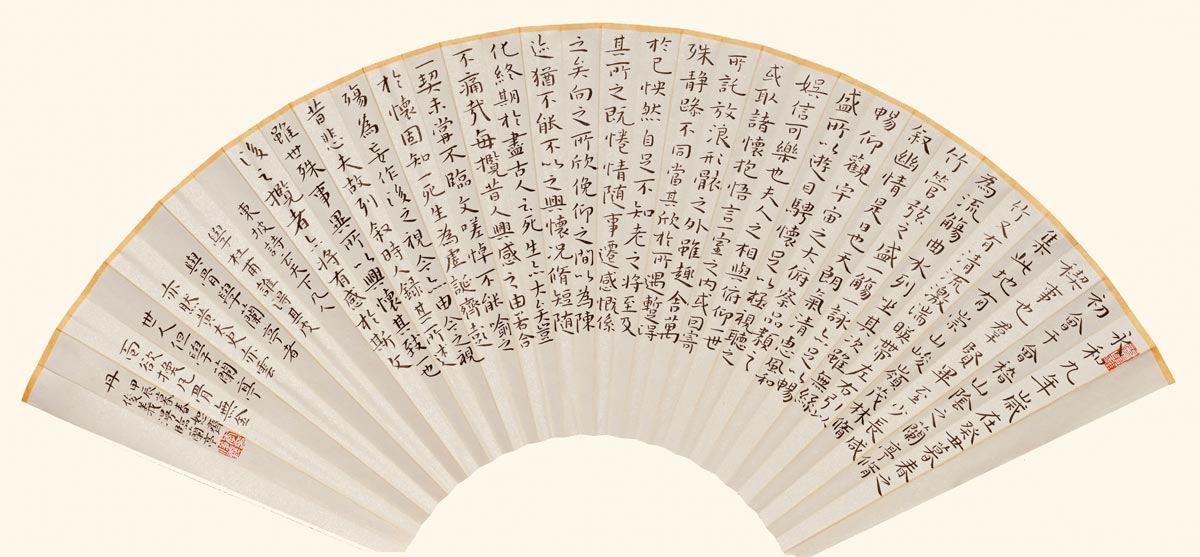 永和九年歲在癸丑暮春之
初會于會稽山陰之蘭亭脩
禊事也羣賢畢至少長咸
集此地有崇山峻嶺茂林脩
竹又有清流激湍暎帶左右引以
為流觴曲水列坐其次雖無絲
竹管弦之盛一觴一詠亦足以暢
敘幽情是日也天朗氣清惠風和
暢仰觀宇宙之大俯察品類之
盛所以遊目騁懷足以極視聽之
娛信可樂也夫人之相與俯仰一世
或取諸懷抱悟言一室之內或因寄
所託放浪形骸之外雖趣舍萬
殊靜躁不同當其欣於所遇暫得
於己怏然自足不知老之將至及
其所之既惓情隨事遷感慨係
之矣向之所欣俛仰之間以為陳
迹猶不能不以之興懷況脩短隨
化終期於盡古人云死生亦大矣豈
不痛哉每攬昔人興感之由若合
一契未嘗不臨文嗟悼不能喻之
於懷固知一死生為虛誕齊彭
殤為妄作後之視今亦由今之視
昔悲夫故列敘時人錄其所述
雖世殊事異所以興懷其致一也
後之攬者亦將有感於斯文
東坡詩云天下几人
學杜甫誰得其皮
與骨學蘭亭者
亦然黃太史亦云
世人但學蘭亭
面欲換凡骨無金
丹 甲辰暮春